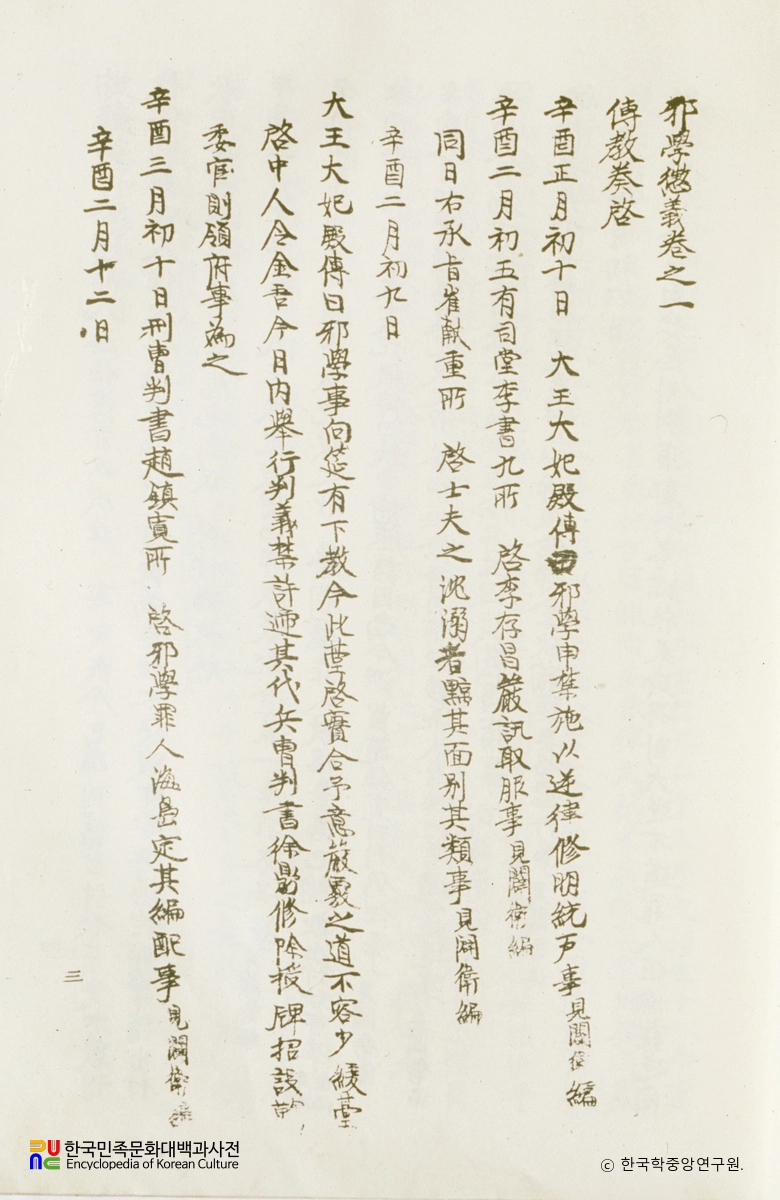 邪學懲義卷之一
傳教奏啓
辛酉正月初十日 大王大妃殿傳曰邪學申禁施以逆律修明統戶事見闢衛編
辛酉二月初五有司堂李書九所 啓李存昌嚴訊取服事見闢衛編
同日右承旨崔獻重所 啓士夫之沈溺者黥其面別其類事見闢衛編
辛酉二月初九日
大王大妃殿傳曰邪學事向筵有下教今此臺啓實合予意嚴覈之道不容少緩臺
啓中人令金吾今日內擧行判義禁許遞其代兵曹判書徐鼎修除授牌招設
委官則領府事爲之
辛酉三月初十日刑曹判書趙鎭寬所 啓邪學罪人海島定其編配事見闢衛編
辛酉二月十二日
三
한국민족문화대백과사전
Encyclopedia of Korean Culture
ⓒ 한국학중앙연구원.